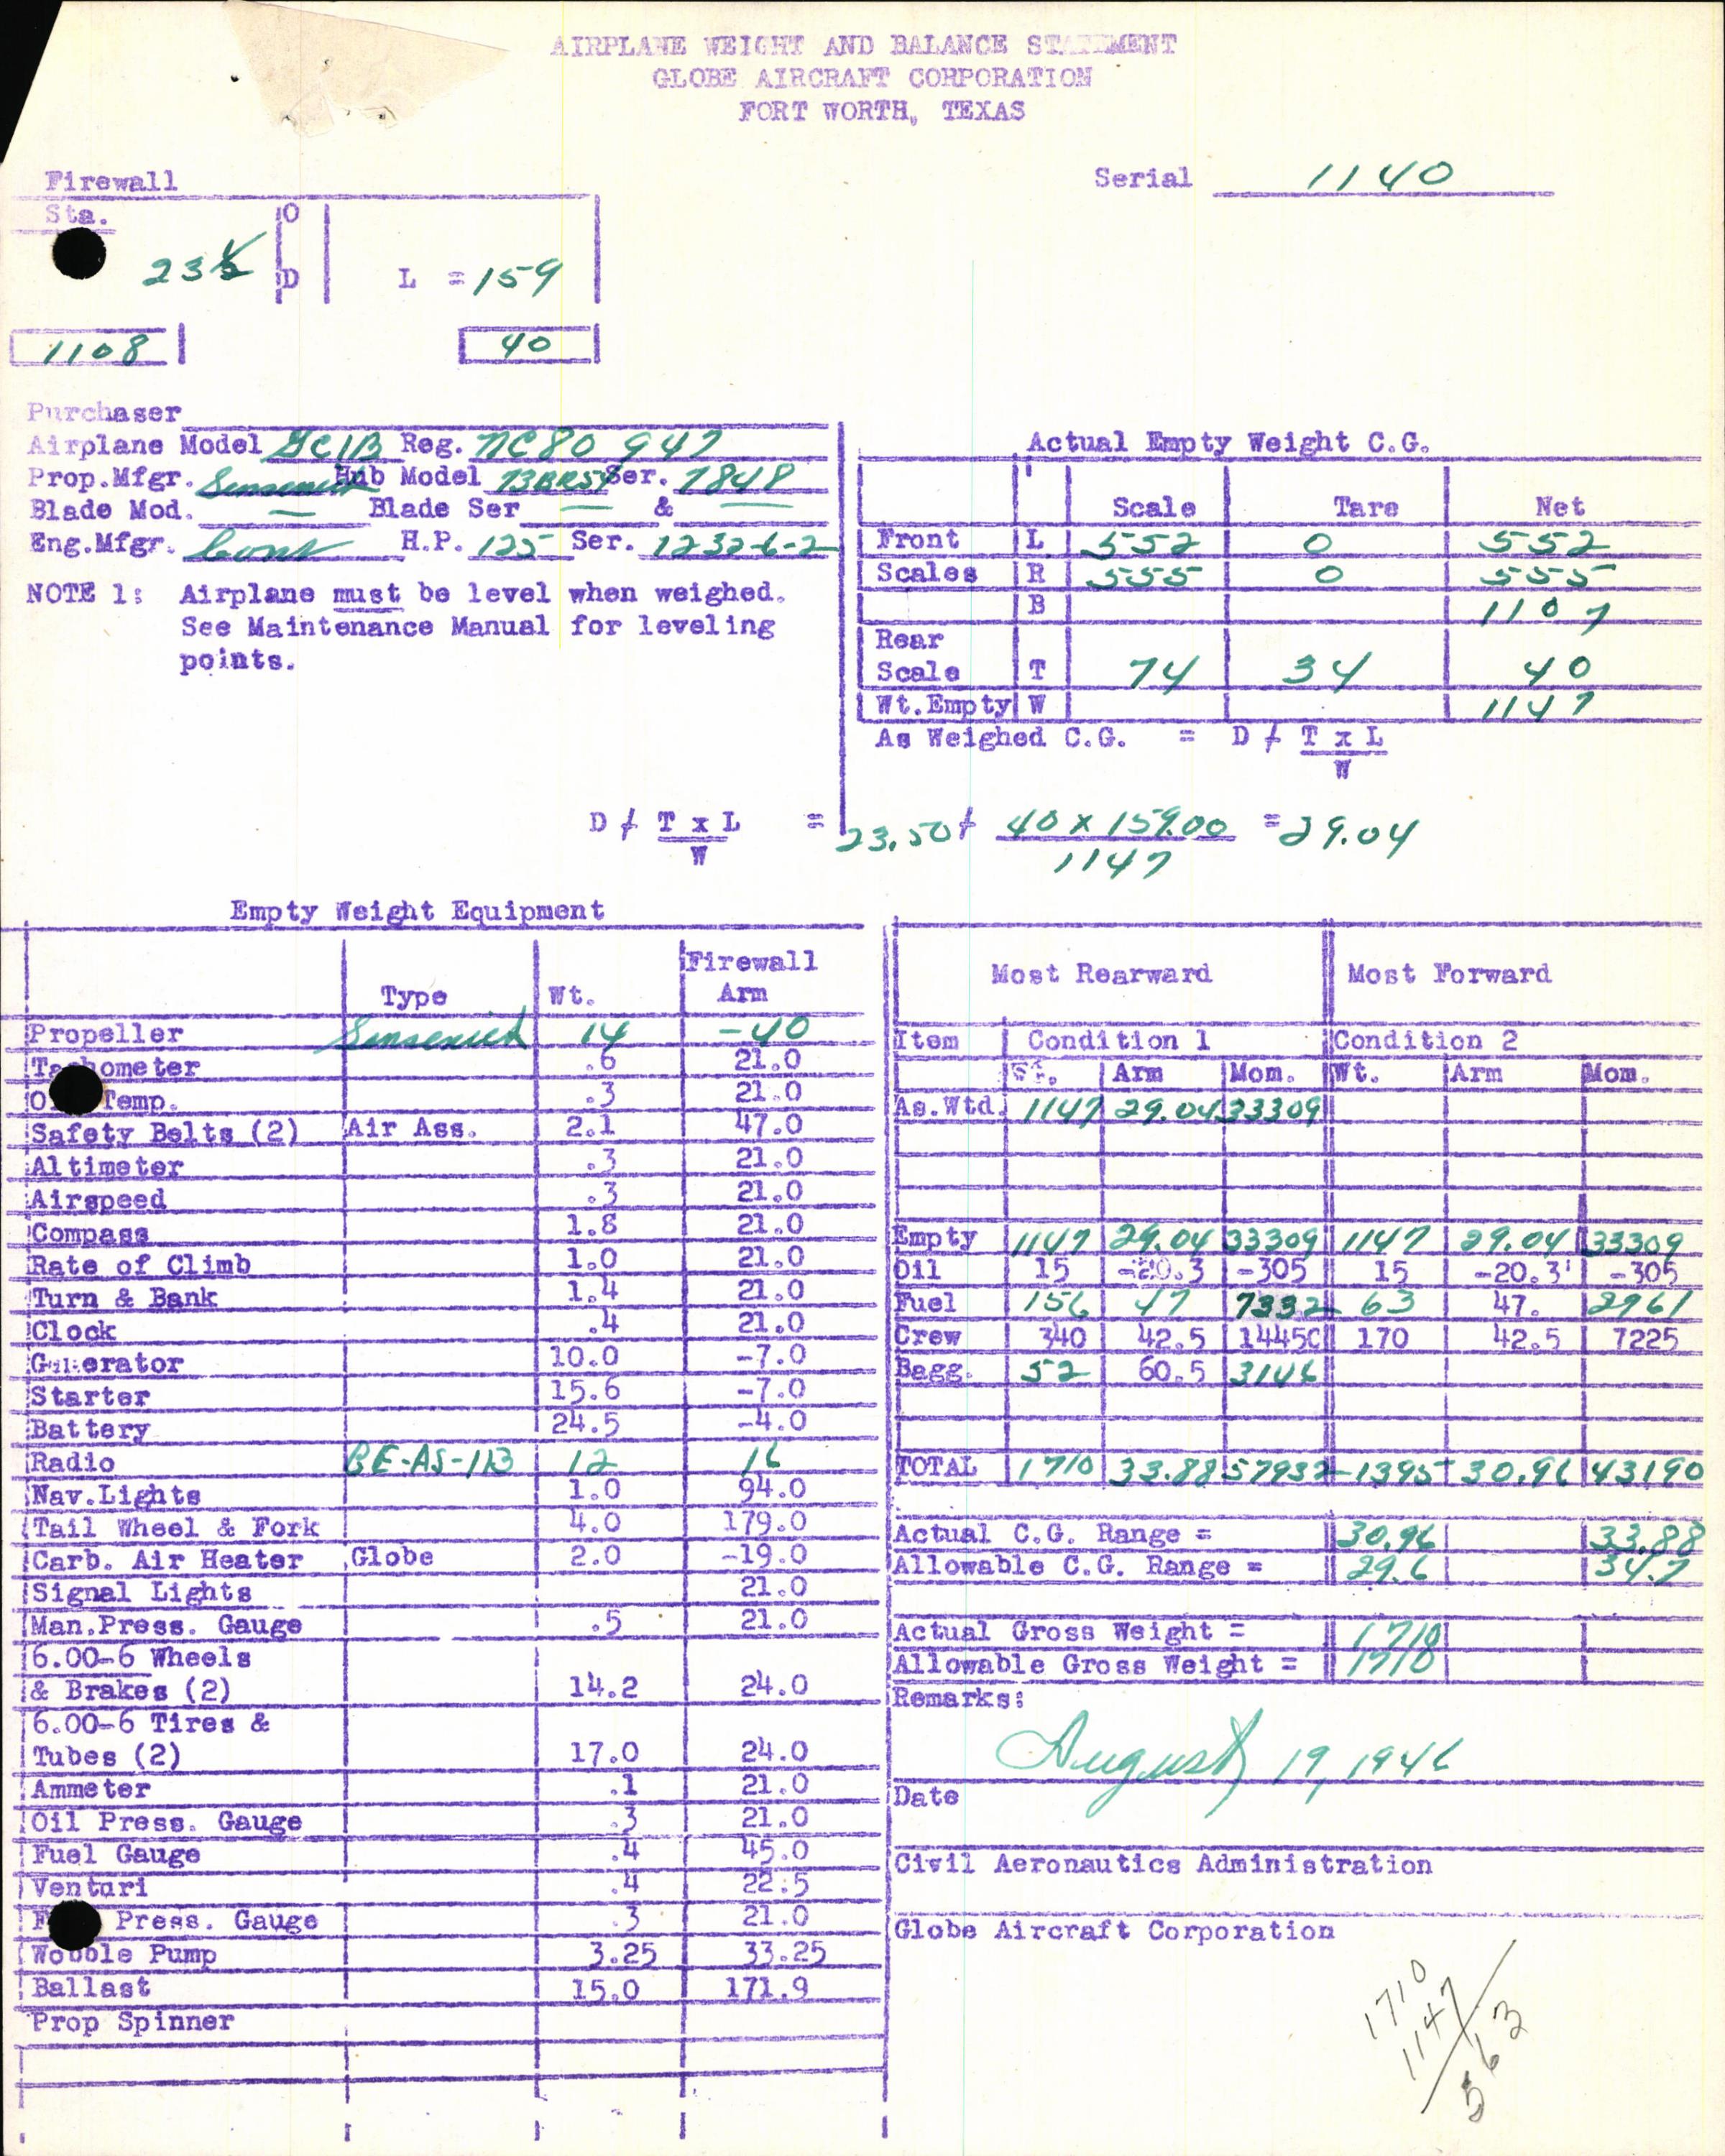 AIRPLANE WEIGHT AND BALANCE STATEMENT
GLOBE AIRCRAFT CORPORATION
FORT WORTH, TEXAS
Firewall
Serial 1140
Sta. O
23 ½ D L = 159
1108 40
Purchaser
Airplane Model GC1B Reg. NC80 947
Prop.Mfgr. Sensenich Hub Model 73BR54 Ser. 7848
Blade Mod. — Blade Ser — & —
Eng.Mfgr. Cont H.P. 125 Ser. 1232-6-2
NOTE 1: Airplane must be level when weighed.
See Maintenance Manual for leveling
points.
Actual Empty Weight C.G.
Scale Tare Net
Front L 552 0 552
Scales R 555 0 555
B 1107
Rear
Scale T 74 34 40
Wt.Empty W 1147
As Weighed C.G. = D / T x L
W
D / T x L = 23.50 + 40 x 159.00 = 29.04
W 1147
Empty Weight Equipment
Firewall
Type Wt. Arm
Propeller Sensenich 14 -40
Tachometer .6 21.0
Temp. .3 21.0
Safety Belts (2) Air Ass. 2.1 47.0
Altimeter .3 21.0
Airspeed .3 21.0
Compass 1.8 21.0
Rate of Climb 1.0 21.0
Turn & Bank 1.4 21.0
Clock .4 21.0
Generator 10.0 -7.0
Starter 15.6 -7.0
Battery 24.5 -4.0
Radio BE-AS-113 12 16
Nav.Lights 1.0 94.0
Tail Wheel & Fork 4.0 179.0
Carb. Air Heater Globe 2.0 -19.0
Signal Lights 21.0
Man.Press. Gauge .5 21.0
6.00-6 Wheels
& Brakes (2) 14.2 24.0
6.00-6 Tires &
Tubes (2) 17.0 24.0
Ammeter .1 21.0
Oil Press. Gauge .3 21.0
Fuel Gauge .4 45.0
Venturi .4 22.5
Press. Gauge .3 21.0
Wobble Pump 3.25 33.25
Ballast 15.0 171.9
Prop Spinner
Most Rearward Most Forward
Item Condition 1 Condition 2
Wt. Arm Mom. Wt. Arm Mom.
As.Wtd. 1147 29.04 33309
Empty 1147 29.04 33309 1147 29.04 33309
Oil 15 -20.3 -305 15 -20.3 -305
Fuel 156 47 7332 63 47. 2961
Crew 340 42.5 14450 170 42.5 7225
Bagg. 52 60.5 3146
TOTAL 1710 33.88 57932 1395 30.96 43190
Actual C.G. Range = 30.96 33.88
Allowable C.G. Range = 29.6 34.7
Actual Gross Weight = 1710
Allowable Gross Weight = 1710
Remarks:
August 19, 1946
Date
Civil Aeronautics Administration
Globe Aircraft Corporation
1710
1147
563